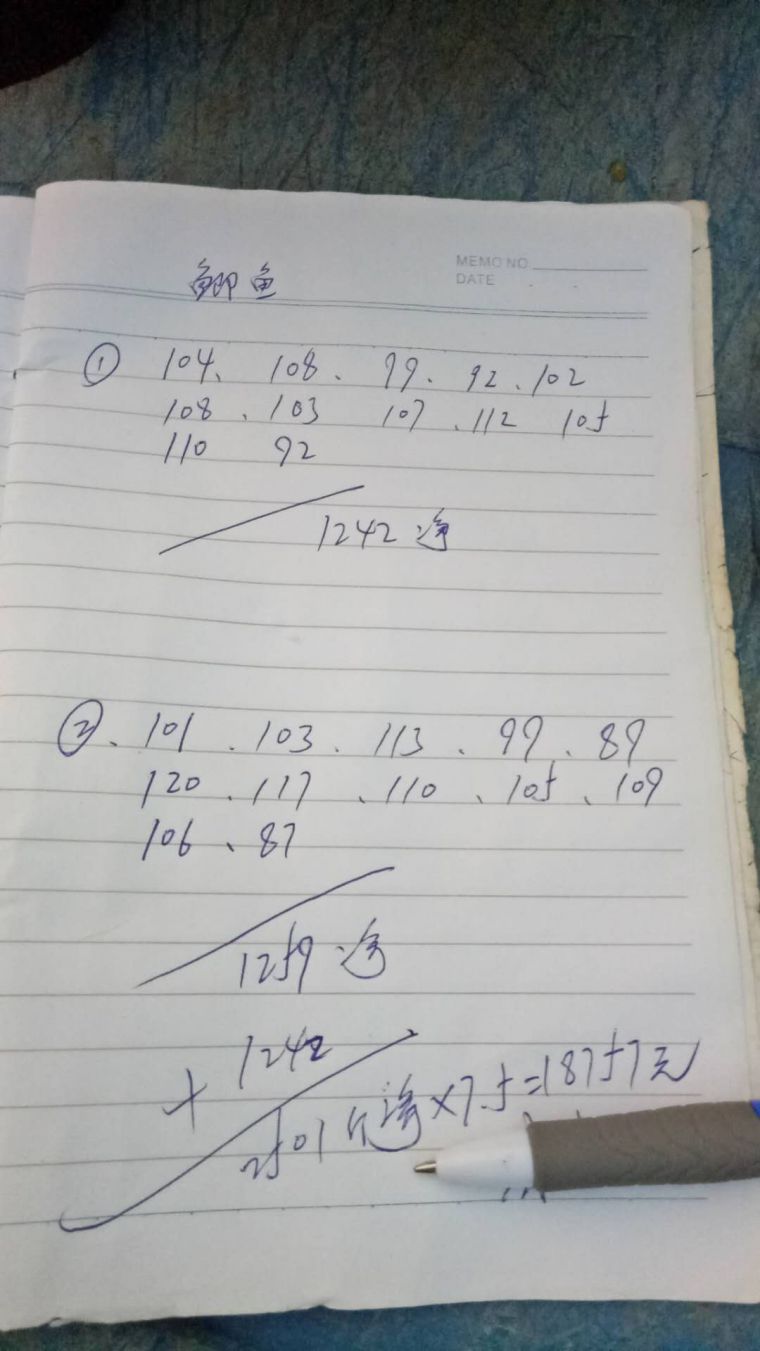 鲫鱼
MEMO NO
DATE
① 104、108、99、92、102
108、103 107、112 105
110 92
1242 净
②、101、103、113、99、89
120、117、110、105、109
106、87
1259 净
+ 1242
2501斤净×7.5=18757元